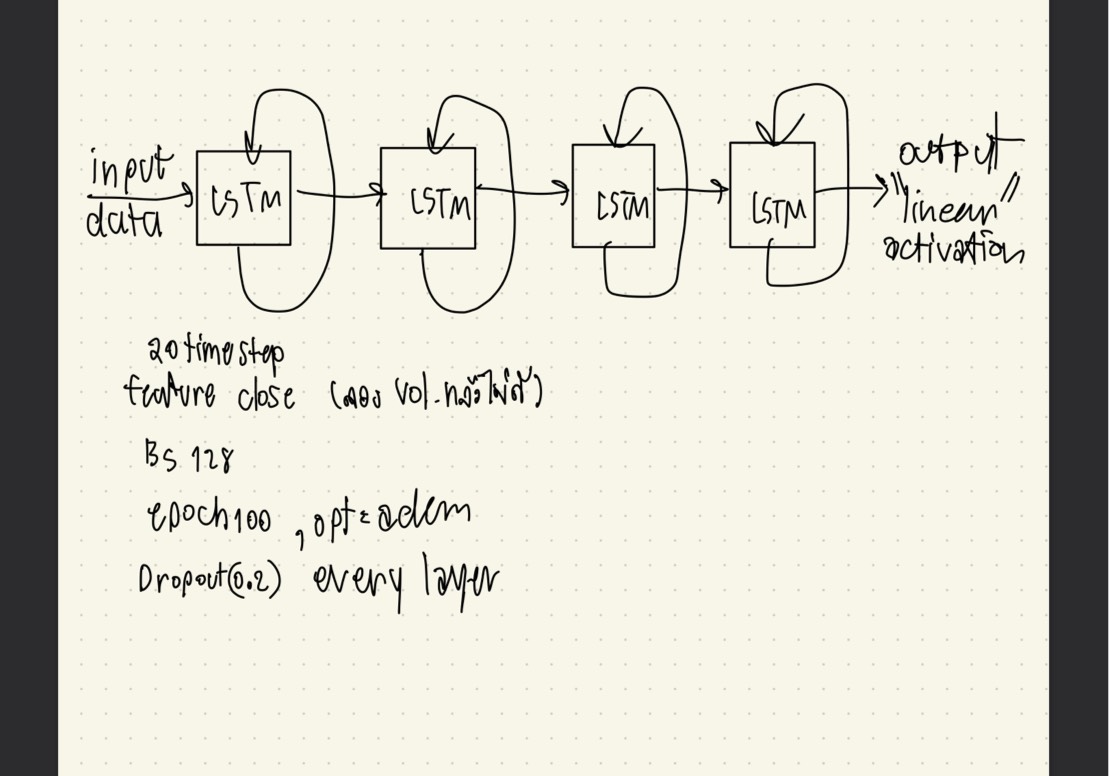 input
data
LSTM
LSTM
LSTM
LSTM
output
"linear"
activation
20 timestep
feature close (ลอง vol. แล้วไม่ดี)
BS 128
epoch 100 , opt = adam
Dropout(0.2) every layer